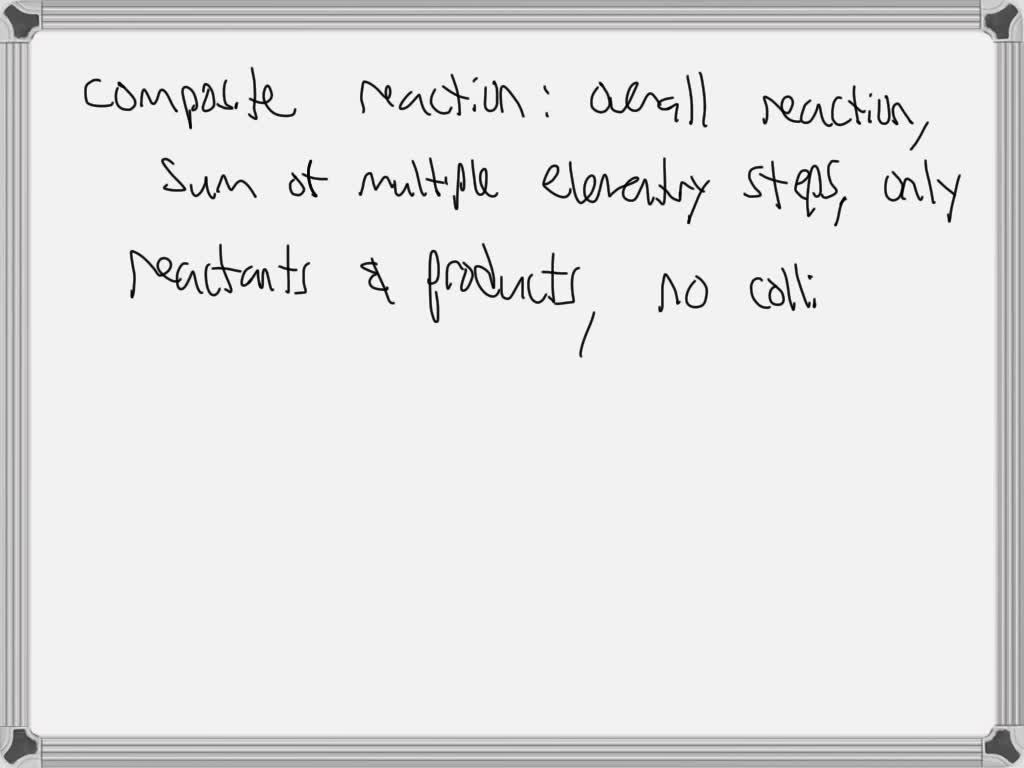 composite reaction: overall reaction,
sum of multiple elementry steps, only
reactants & products, no colli